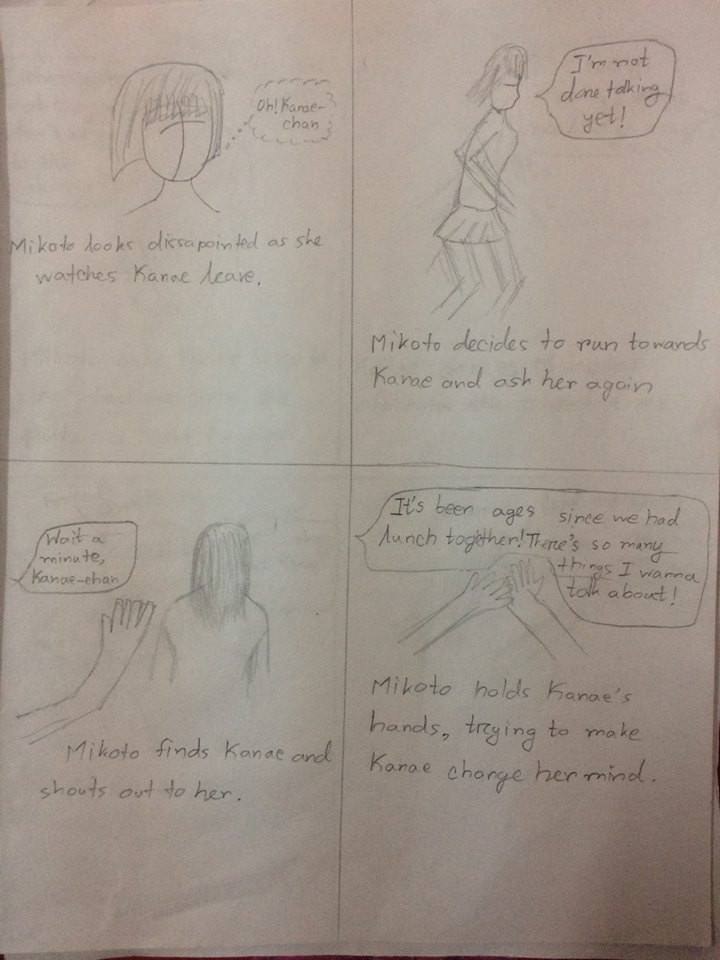 Oh! Kanae-
chan
Mikoto looks dissapointed as she
watches Kanae leave.
I'm not
done talking
yet!
Mikoto decides to run towards
Kanae and ask her again
Wait a
minute,
Kanae-chan
Mikoto finds Kanae and
shouts out to her.
It's been ages since we had
lunch together! There's so many
things I wanna
talk about!
Mikoto holds Kanae's
hands, trying to make
Kanae change her mind.